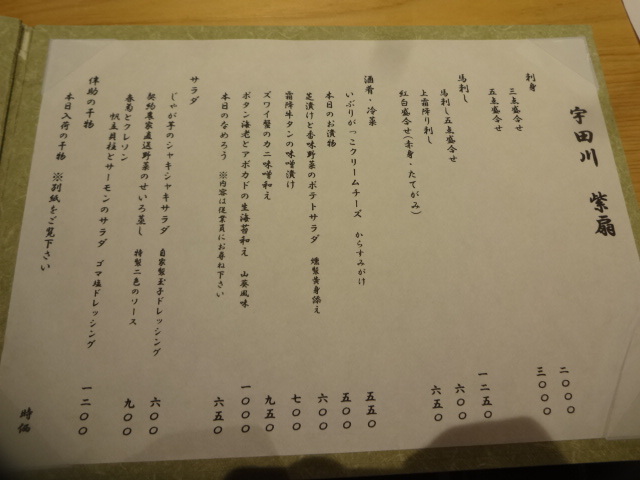 宇田川 紫扇
刺身
三点盛合せ 二〇〇〇
五点盛合せ 三〇〇〇
馬刺し
馬刺し五点盛合せ 一二五〇
上霜降り刺し 六〇〇
紅白盛合せ(赤身・たてがみ) 六五〇
酒肴・冷菜
いぶりがっこクリームチーズ からすみがけ 五五〇
本日のお漬物 五〇〇
芝漬けと香味野菜のポテトサラダ 燻製黄身添え 六〇〇
霜降牛タンの味噌漬け 七〇〇
ズワイ蟹のカニ味噌和え 九五〇
ボタン海老とアボカドの生海苔和え 山葵風味 一〇〇〇
本日のなめろう ※内容は従業員にお尋ね下さい 六五〇
サラダ
じゃが芋のシャキシャキサラダ 自家製玉子ドレッシング 六〇〇
契約農家直送野菜のせいろ蒸し 特製二色のソース 九〇〇
春菊とクレソン
帆立貝柱とサーモンのサラダ ゴマ塩ドレッシング 一二〇〇
の干物
本日入荷の干物 ※別紙をご覧下さい 時価